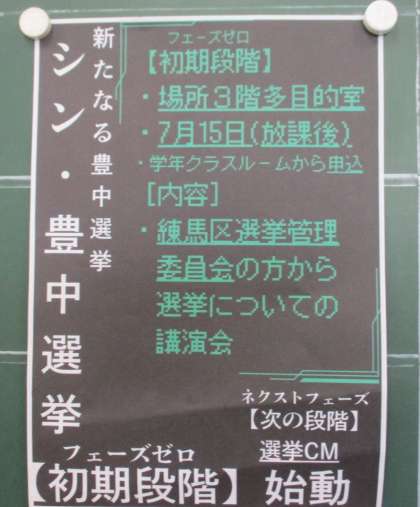 新たなる豊中選挙
シン・豊中選挙
フェーズゼロ
【初期段階】
・場所３階多目的室
・7月15日(放課後)
・学年クラスルームから申込
[内容]
・練馬区選挙管理
委員会の方から
選挙についての
講演会
ネクストフェーズ
【次の段階】
選挙CM
始動
フェーズゼロ
【初期段階】